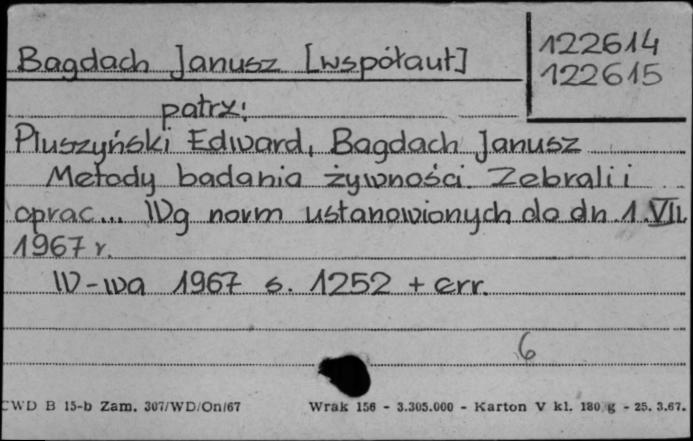 Bagdach Janusz [współaut]
122614
122615
patrz:
Pluszyński Edward, Bagdach Janusz
Metody badania żywności. Zebrali i
oprac... Wg norm ustanowionych do dn. 1.VII.
1967 r.
W-wa 1967 s. 1252 + err.
6
CWD B 15-b Zam. 307/WD/On/67 Wrak 156 - 3.305.000 - Karton V kl. 180 g - 25. 3.67.